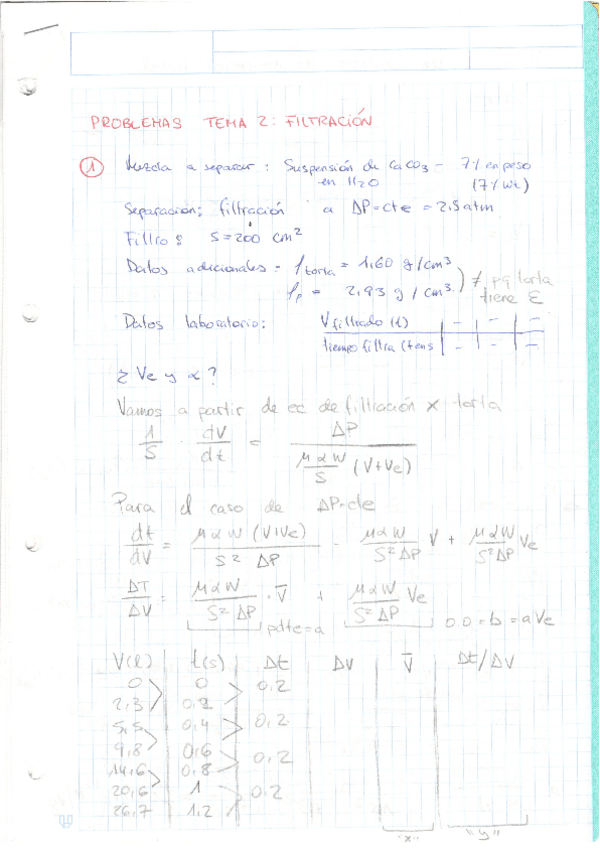 PROBLEMAS TEMA 2: FILTRACIÓN
① Mezcla a separar: Suspensión de CaCO3 - 7% en peso
en H2O (7% wt)
Separación: filtración a ΔP=cte = 2.5 atm
Filtro: S=200 cm2
Datos adicionales = ρtorta = 1,60 g/cm3
ρp = 2,93 g/cm3 ) ≠ pq torta
tiene ε
Datos laboratorio: V filtrado (l) - - -
tiempo filtra - - -
¿Ve y α?
Vamos a partir de ec de filtración x torta
1/S · dV/dt = ΔP / (μαW/S (V+Ve))
Para el caso de ΔP=cte
dt/dV = μαW (V+Ve) / S2 ΔP = μαW/S2ΔP V + μαW/S2ΔP Ve
ΔT/ΔV = μαW/S2ΔP · V̅ + μαW/S2ΔP Ve
pdte=a 0.0=b=aVe
V(l) t(s) Δt ΔV V̅ Δt/ΔV
0 0 0,2
2,3 0,2
5,5 0,4 0,2
9,8 0,6
14,6 0,8 0,2
20,6 1 0,2
26,7 1,2
"x" "y"